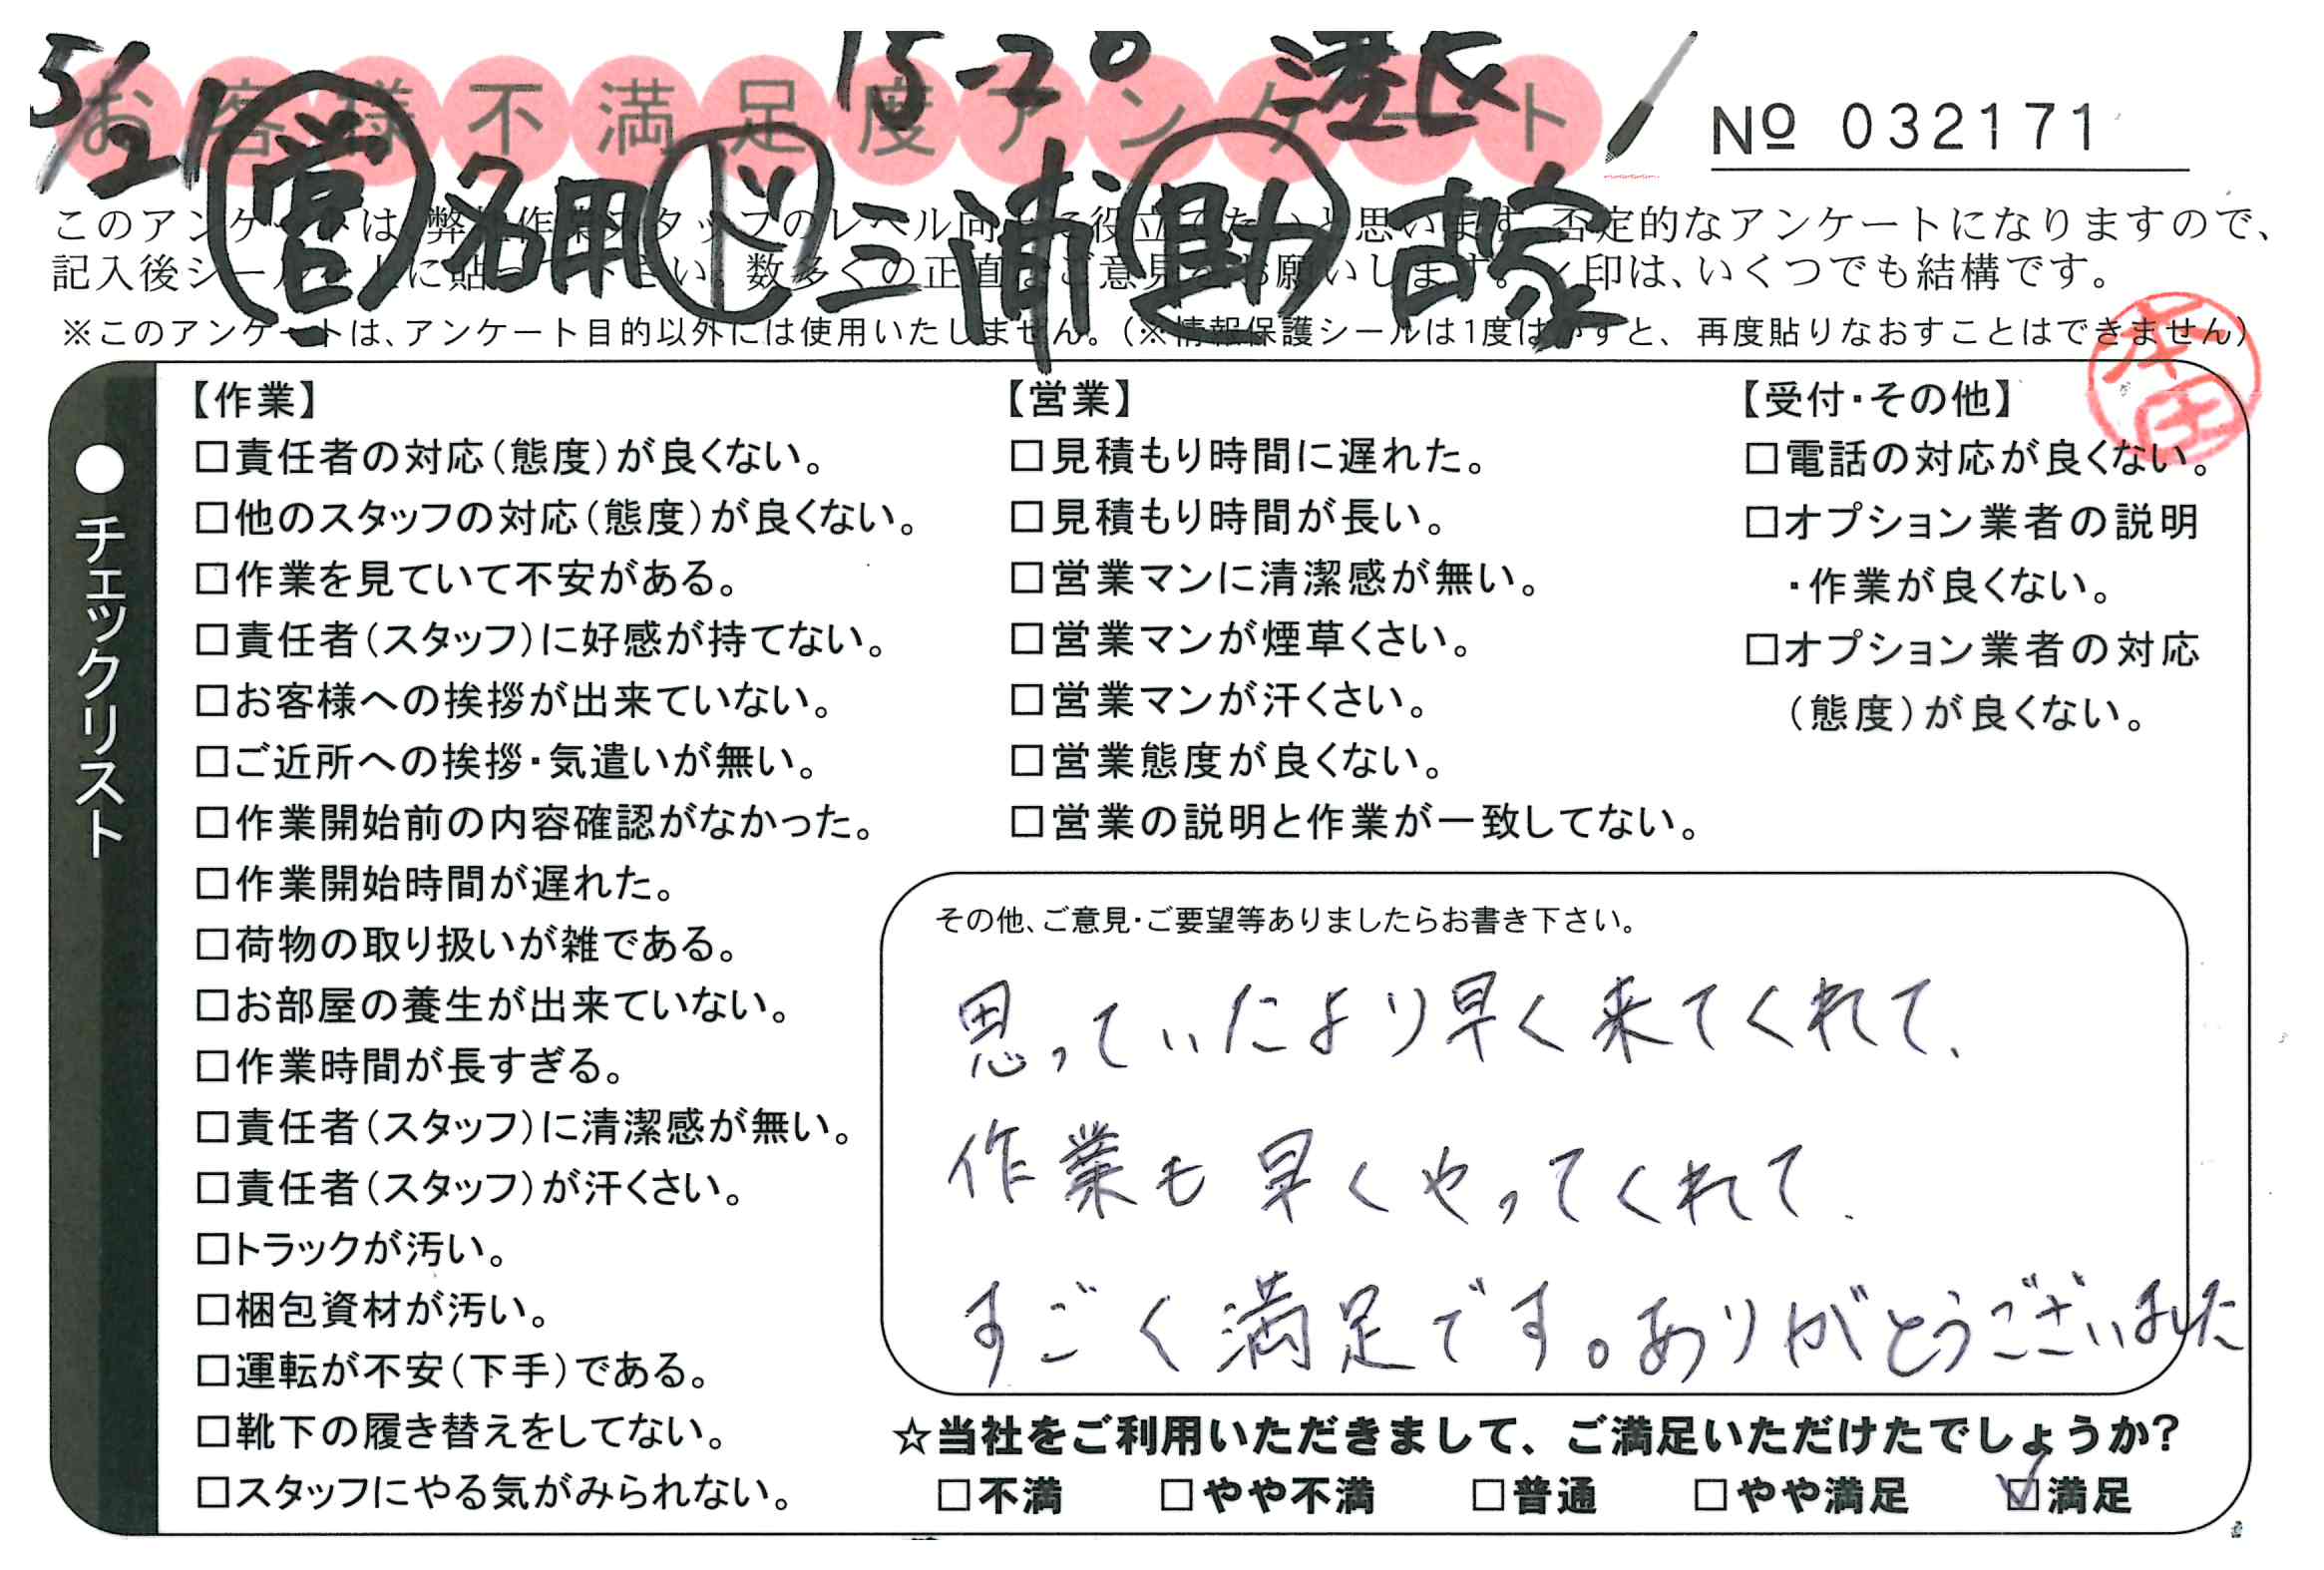 5/21 15-20 港区
お客様不満足度アンケート
No 032171
営 名用 ド 三浦 助 古家
このアンケートは、弊社作業スタッフのレベル向上に役立てたいと思います。否定的なアンケートになりますので、
記入後シールを上に貼って下さい。数多くの正直なご意見をお願いします。✓印は、いくつでも結構です。
※このアンケートは、アンケート目的以外には使用いたしません。（※情報保護シールは1度はがすと、再度貼りなおすことはできません）
本田
●チェックリスト
【作業】
□責任者の対応（態度）が良くない。
□他のスタッフの対応（態度）が良くない。
□作業を見ていて不安がある。
□責任者（スタッフ）に好感が持てない。
□お客様への挨拶が出来ていない。
□ご近所への挨拶・気遣いが無い。
□作業開始前の内容確認がなかった。
□作業開始時間が遅れた。
□荷物の取り扱いが雑である。
□お部屋の養生が出来ていない。
□作業時間が長すぎる。
□責任者（スタッフ）に清潔感が無い。
□責任者（スタッフ）が汗くさい。
□トラックが汚い。
□梱包資材が汚い。
□運転が不安（下手）である。
□靴下の履き替えをしてない。
□スタッフにやる気がみられない。
【営業】
□見積もり時間に遅れた。
□見積もり時間が長い。
□営業マンに清潔感が無い。
□営業マンが煙草くさい。
□営業マンが汗くさい。
□営業態度が良くない。
□営業の説明と作業が一致してない。
【受付・その他】
□電話の対応が良くない。
□オプション業者の説明
・作業が良くない。
□オプション業者の対応
（態度）が良くない。
その他、ご意見・ご要望等ありましたらお書き下さい。
思っていたより早く来てくれて、
作業も早くやってくれて、
すごく満足です。ありがとうございました
☆当社をご利用いただきまして、ご満足いただけたでしょうか？
□不満 □やや不満 □普通 □やや満足 ☑満足